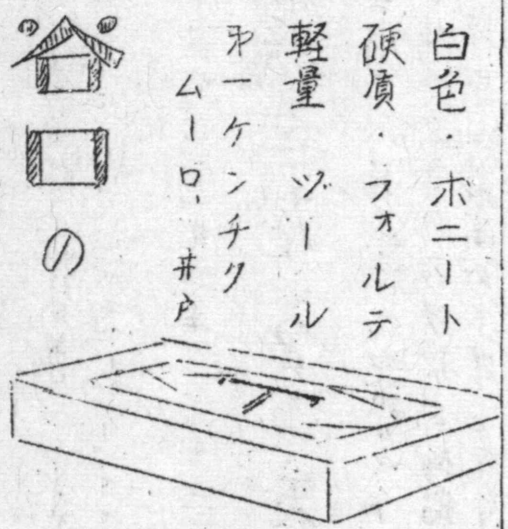 白色・ホニート
硬質・フォルテ
軽量 ヅール
㐧一ケンチク
ムーロ・井戸
谷口の